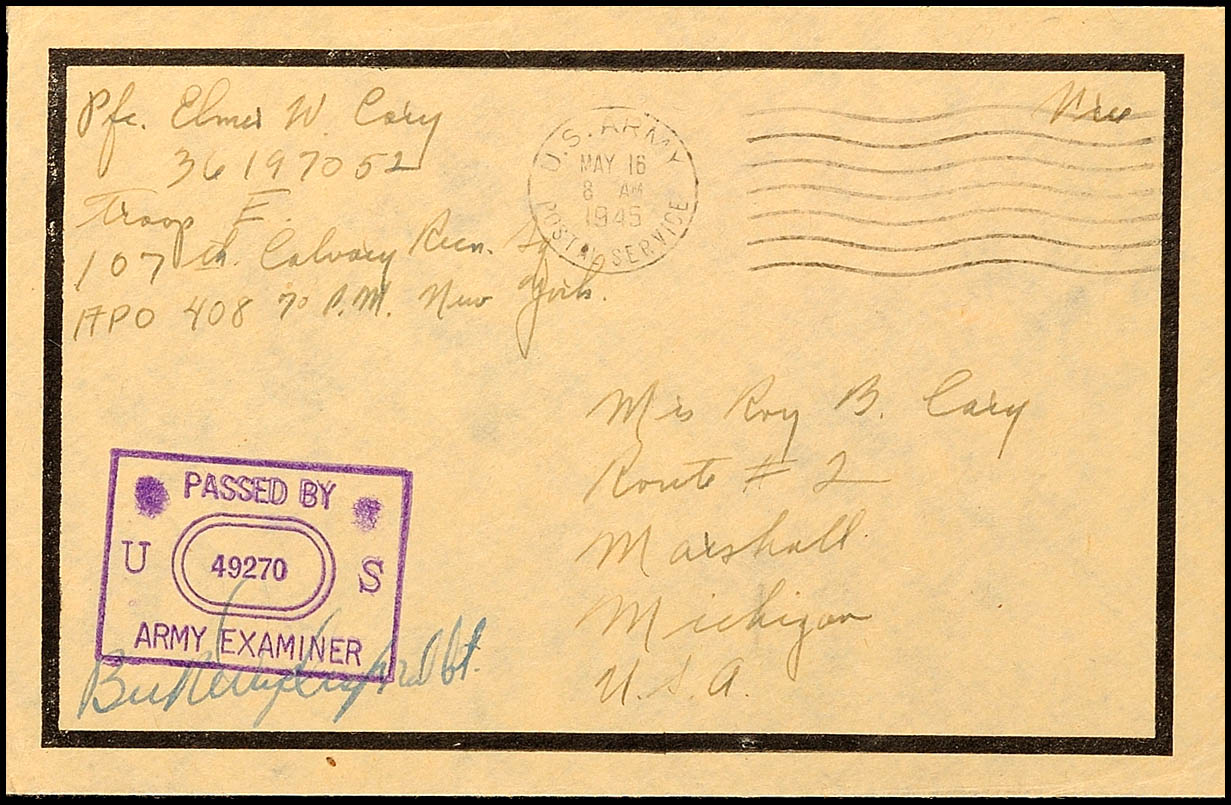 Pfc. Elmer W. Cary
36197052
Troop E.
107th. Calvary Recn. Sq
APO 408 % P.M. New York.
U.S. ARMY
MAY 16
8 AM
1945
POSTAL SERVICE
Free
Mrs Roy B. Cary
Route # 2
Marshall
Michigan
U.S.A.
PASSED BY
U 49270 S
ARMY EXAMINER